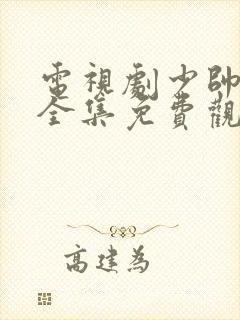 電視劇少帥
全集免費觀
高建為